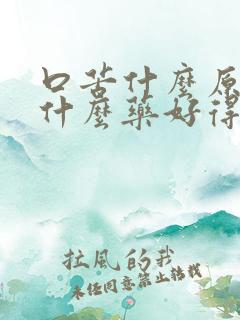 口苦什麼原
什麼藥好得
拉風的我
未經同意禁止轉載